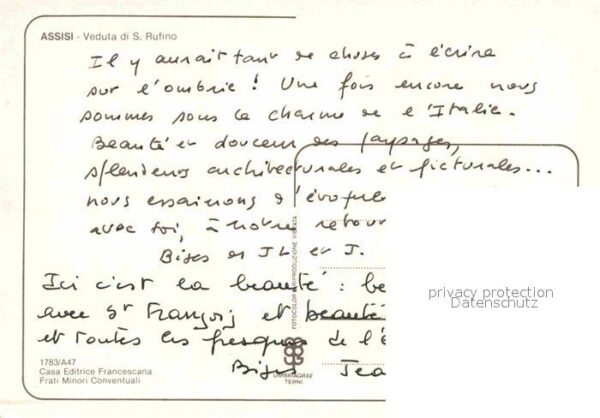 ASSISI - Veduta di S. Rufino
Il y aurait tant de choses à écrire
sur l'ombrie ! Une fois encore nous
sommes sous le charme de l'Italie.
Beauté et douceur des paysages,
splendeurs architecturales et picturales...
nous essaierons d'évoque
avec toi, à notre retour
Bises de JL et J.
Ici c'est la beauté : be
avec St François et beauté
et toutes les fresques de l'é
Bises Jea
FOTOCOLOR RIPRODUZIONE VIETATA
1783/A47
Casa Editrice Francescana
Frati Minori Conventuali
UMBRIAGRAF
TERNI
privacy protection
Datenschutz